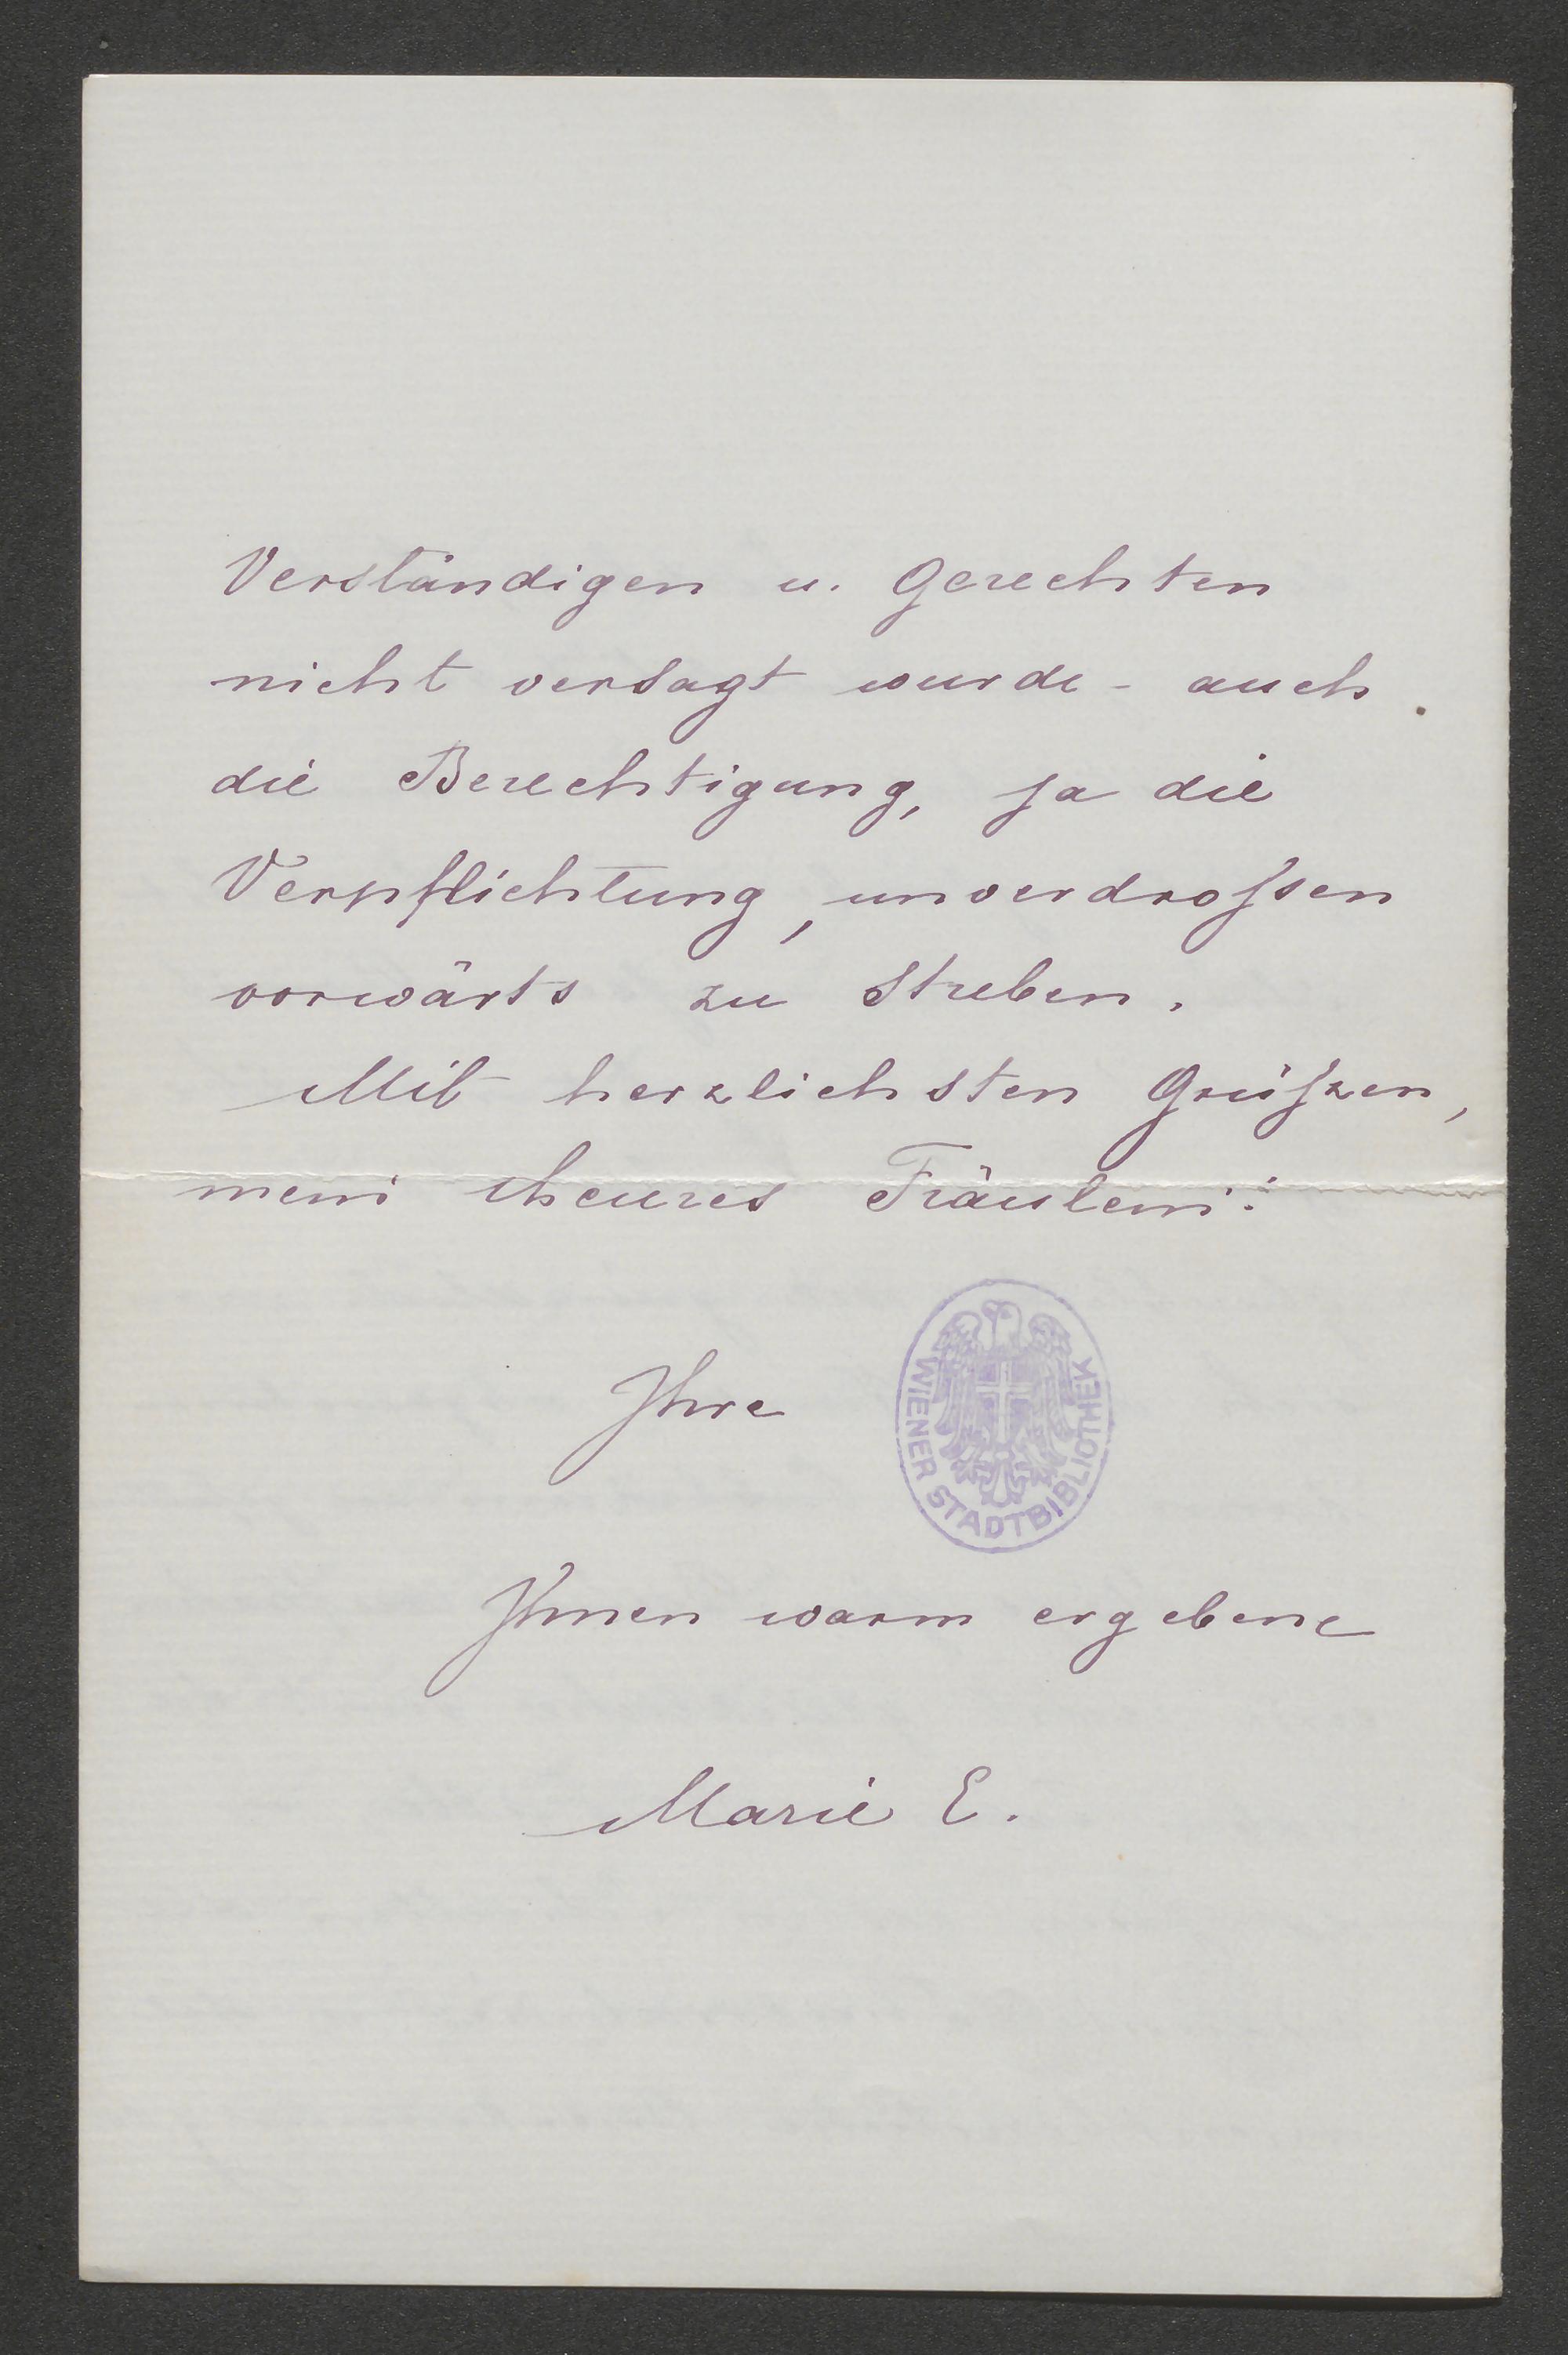 Verständigen u. Gerechten
nicht versagt wurde - auch
die Berechtigung, ja die
Verpflichtung, unverdrossen
vorwärts zu streben.
Mit herzlichsten Grüßen,
mein theures Fräulein!
Ihre
WIENER STADTBIBLIOTHEK
Ihnen warm ergebene
Marie E.